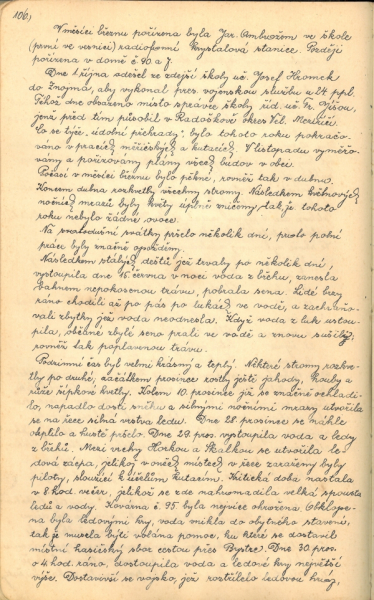 106.
V měsíci březnu pořízena byla Jar. Ambrožem ve škole
(první ve vesnici) radiofonní krystalová stanice. Později
pořízena v domě č. 90 a 7.
Dne 1. října odešel ze zdejší školy uč. Josef Hromek
do Znojma, aby vykonal pres. vojenskou službu u 24 p. pl.
Téhož dne obsazeno místo správce školy říd. uč. Fr.
jenž před tím působil v Radoškově okres Vel. Meziříčí.
Co se týče „údolní přehrady“, bylo tohoto roku pokračo-
váno v pracích měřičských a kutacích. V listopadu vyměřo-
vány a pořizovány plány všech budov v obci.
Počasí v měsíci březnu bylo pěkné, rovněž tak v dubnu.
Koncem dubna rozkvetly všechny stromy. Následkem květnových
nočních mrazů byly květy úplně zničeny, tak, že tohoto
roku nebylo žádné ovoce.
Na svatodušní svátky pršelo několik dní, proto polní
práce byly značně opožděny.
Následkem stálých dešťů, jež trvaly po několik dní,
vystoupila dne 15. června v noci voda z břehu, zanesla
bahnem nepokosenou trávu, pobrala sena. Lidé brzy
ráno chodili až po pás po lukách ve vodě, a zachraňo-
vali zbytky jež voda neodnesla. Když voda z luk ustou-
pila, obtížně zbylé seno prali ve vodě a znovu sušili;
rovněž tak poplavenou trávu.
Podzimní čas byl velmi krásný a teplý. Některé stromy rozkve-
tly po druhé, začátkem prosince rostly ještě jahody, houby a
růže šípkové kvetly. Kolem 10. prosince již se značně ochladi-
lo, napadlo dosti sněhu a silnými nočními mrazy utvořila
se na řece silná vrstva ledu. Dne 28. prosince se náhle
oteplilo a hustě pršelo. Dne 29. pros. vystoupila voda a ledy
z břehů. Mezi vrchy Horkou a Skalkou se utvořila le-
dová zácpa, jelikož v oněch místech v řece zaraženy byly
piloty, sloužící k účelům kutacím. Kritická doba nastala
v 8 hod. večer, jelikož se zde nahromadila velká spousta
ledů a vody. Kovárna č. 95 byla nejvíce ohrožena. Obklope-
na byla ledovými kry, voda vnikla do obytného stavení,
tak, že musela býti volána pomoc, ku které se dostavil
místní hasičský sbor cestou přes Bystrc. Dne 30. pros.
o 4. hod. ráno, dostoupila voda a ledové kry největší
výše. Dostavivší se vojsko, jež roztřílelo ledovou hráz,